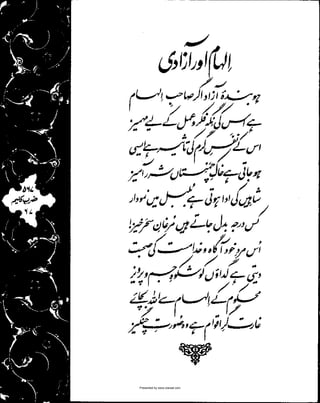 الہام اور آزادی
ہو بندۂ آزاد اگر صاحبِ الہام
ہے اس کی نگہ فکر و عمل کے لیے مہمیز
اس کے نفسِ گرم کی تاثیر ہے ایسی
ہو جاتی ہے خاکِ چمنستاں شرر آمیز
شاہیں کی ادا ہوتی ہے بلبل میں نمودار
کس درجہ بدل جاتے ہیں مرغانِ سحر خیز
اس مردِ خود آگاہ و خدا مست کی صحبت
دیتی ہے گداؤں کو شکوہِ جم و پرویز
محکوم کے الہام سے اللہ بچائے
غارت گرِ اقوام ہے وہ صورتِ چنگیز
۵۱۷
ضربِ کلیم
۱۷